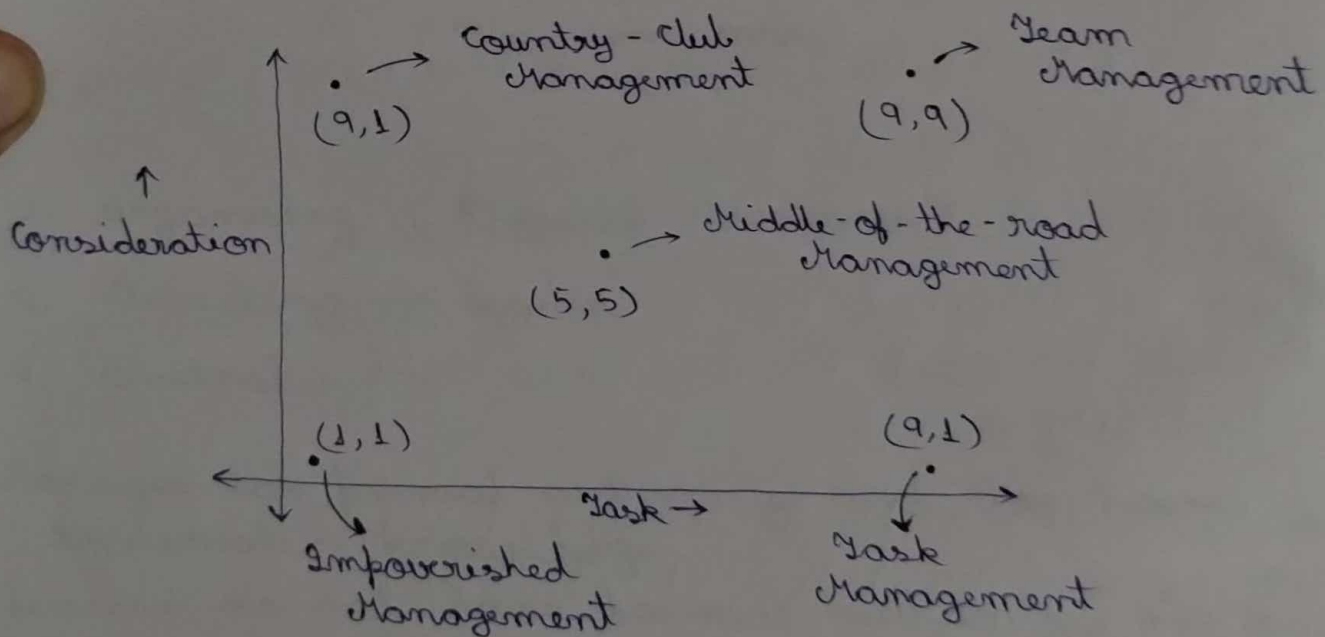 Country-Club
Management
(9,1)
Team
Management
(9,9)
↑
Consideration
Middle-of-the-road
Management
(5,5)
(1,1)
(9,1)
Task →
Impoverished
Management
Task
Management